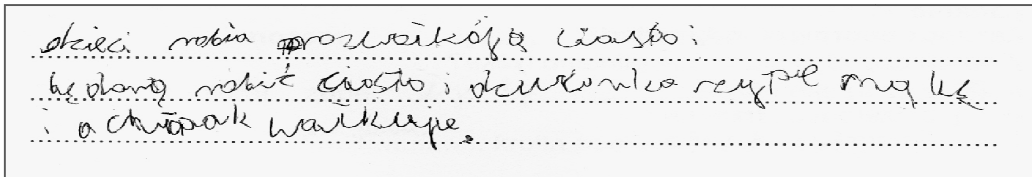 dzieci robia prozwałkóją ciasto i
będaną robić ciasto i dziewcnka rzypię mąkę
i a chłopak wałkuje.